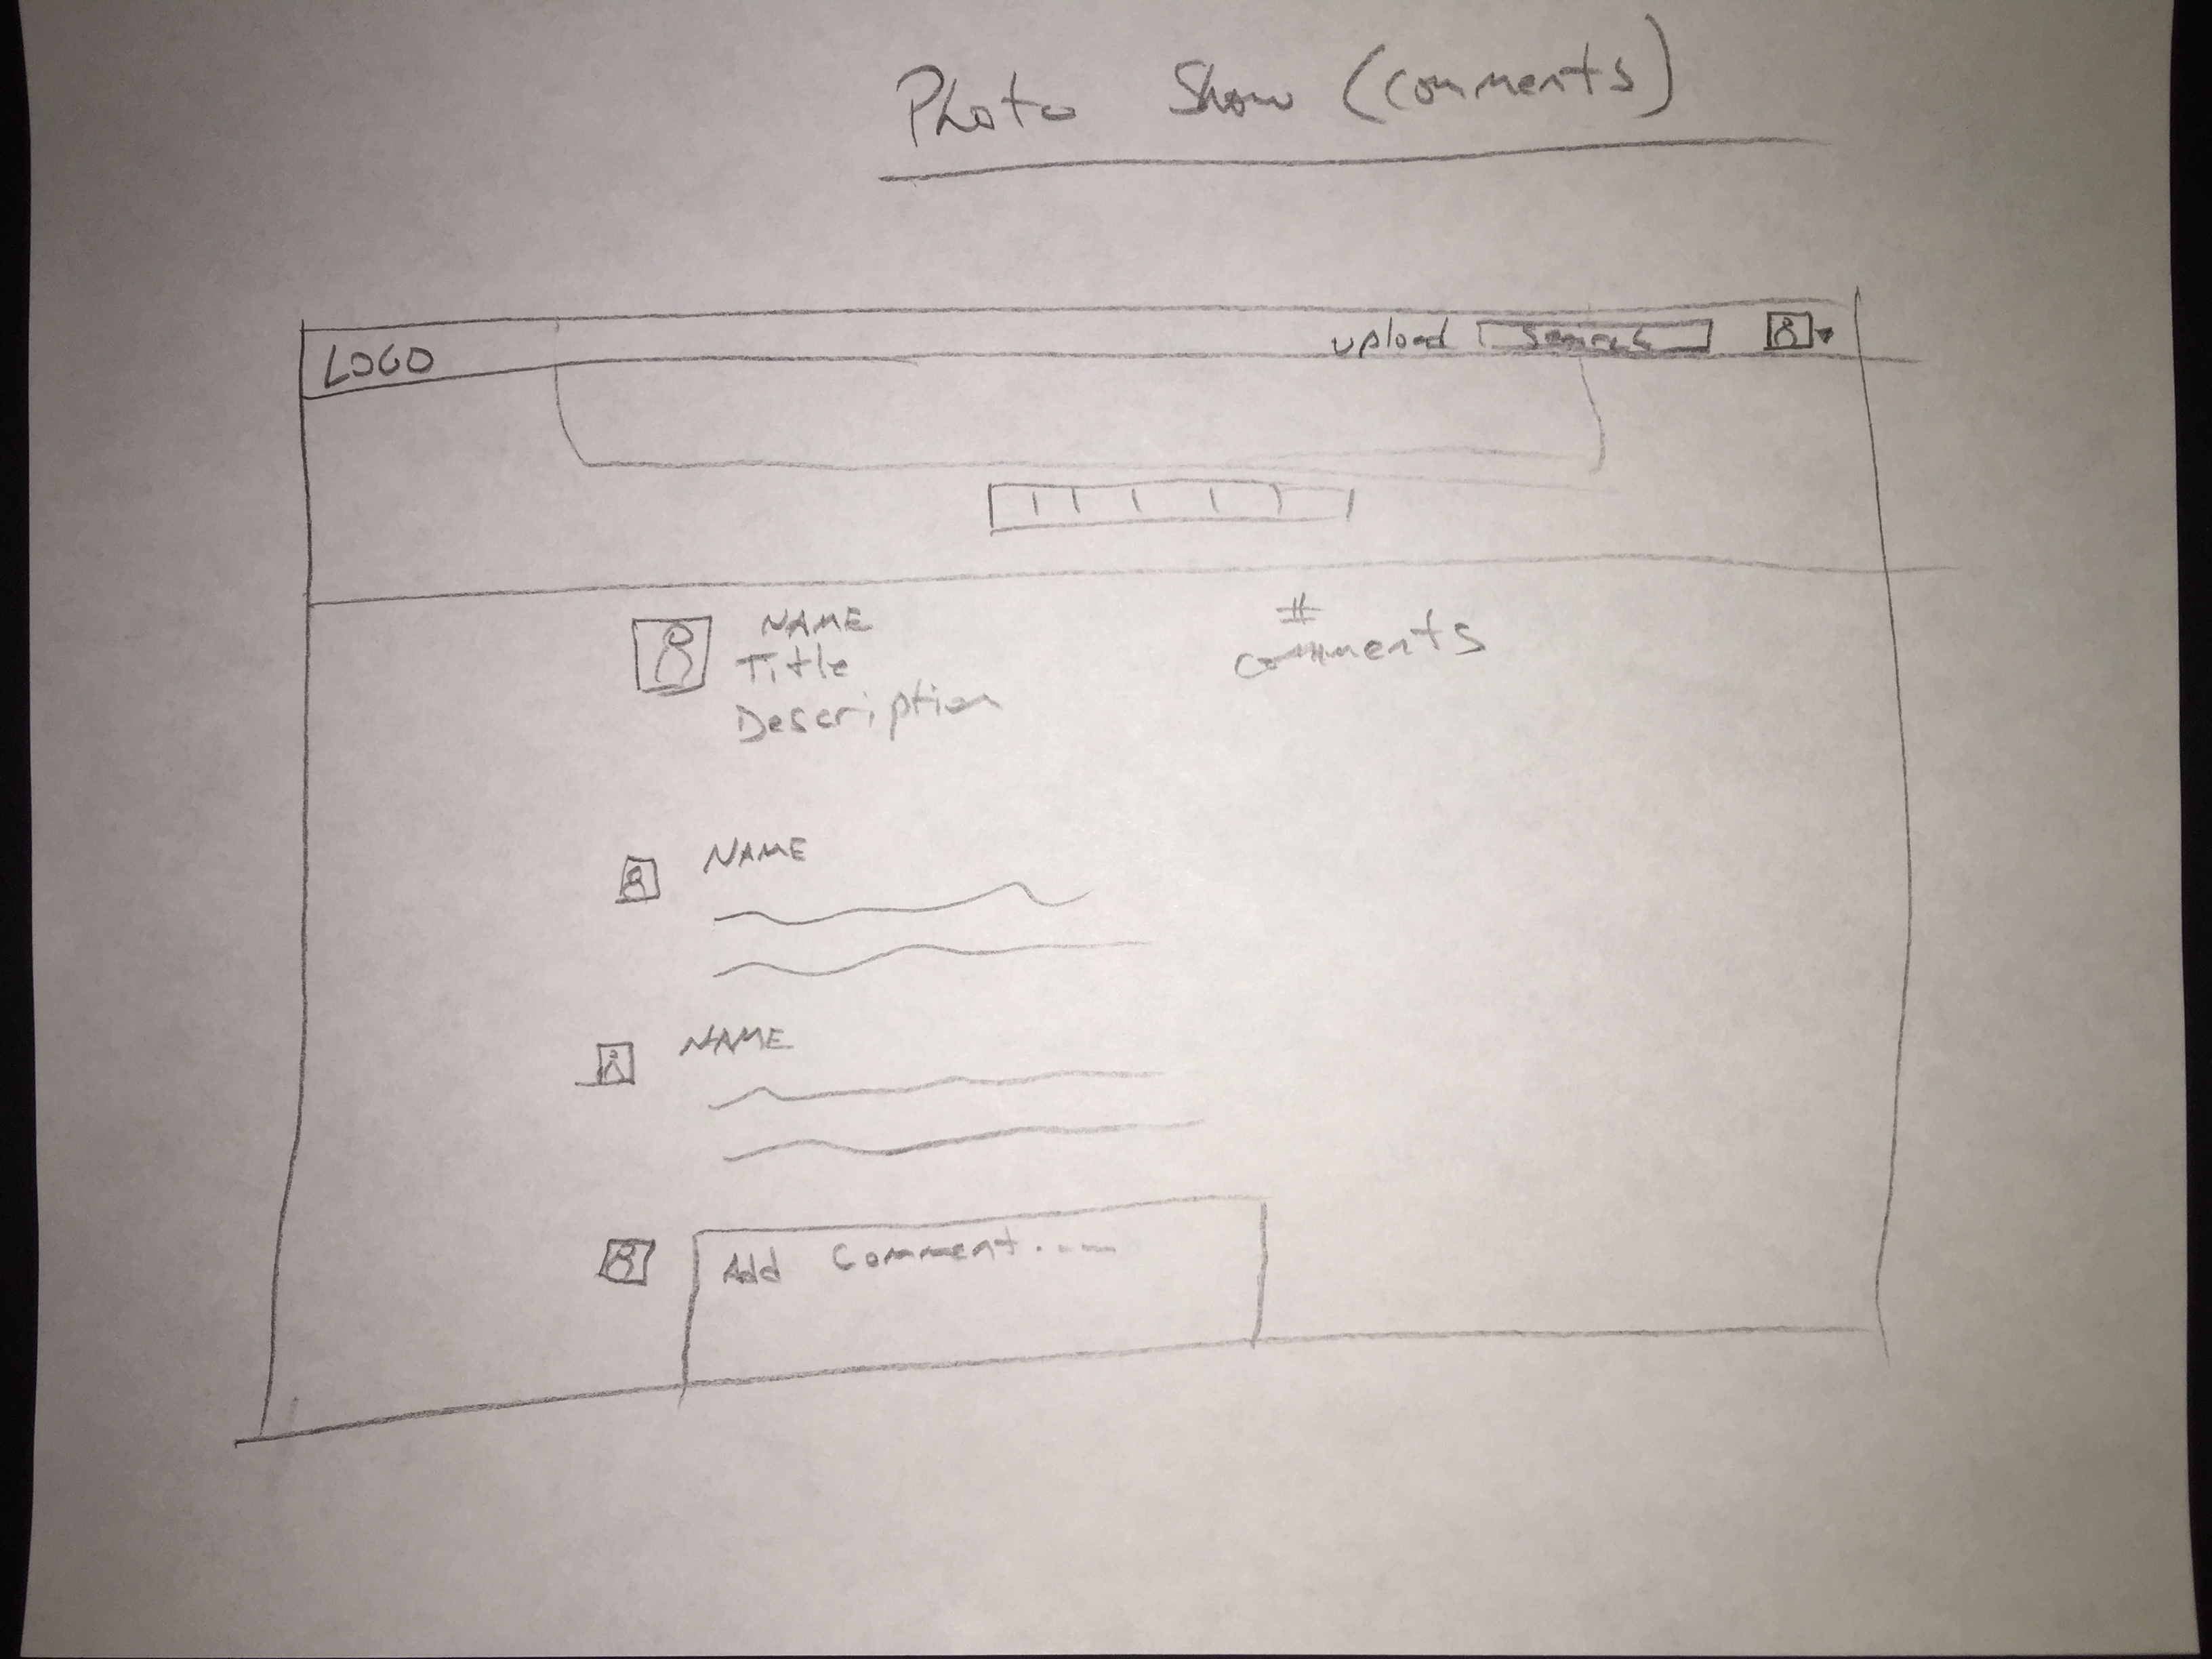 Photo Show (comments)
LOGO
upload Search
NAME
Title
Description
#
comments
NAME
NAME
Add Comment....